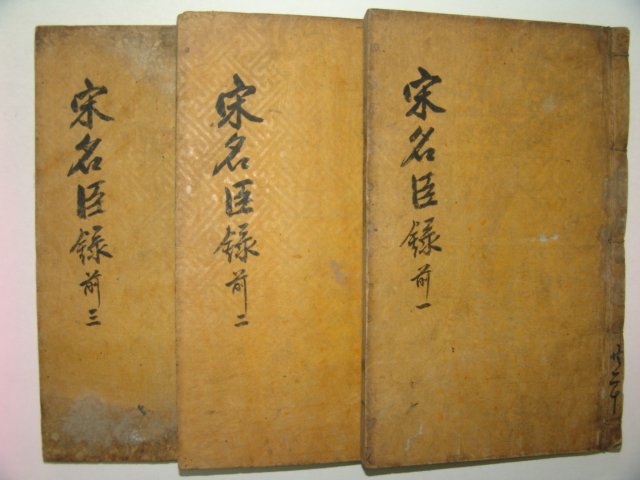 宋名臣錄 前一
宋名臣錄 前二
宋名臣錄 前三